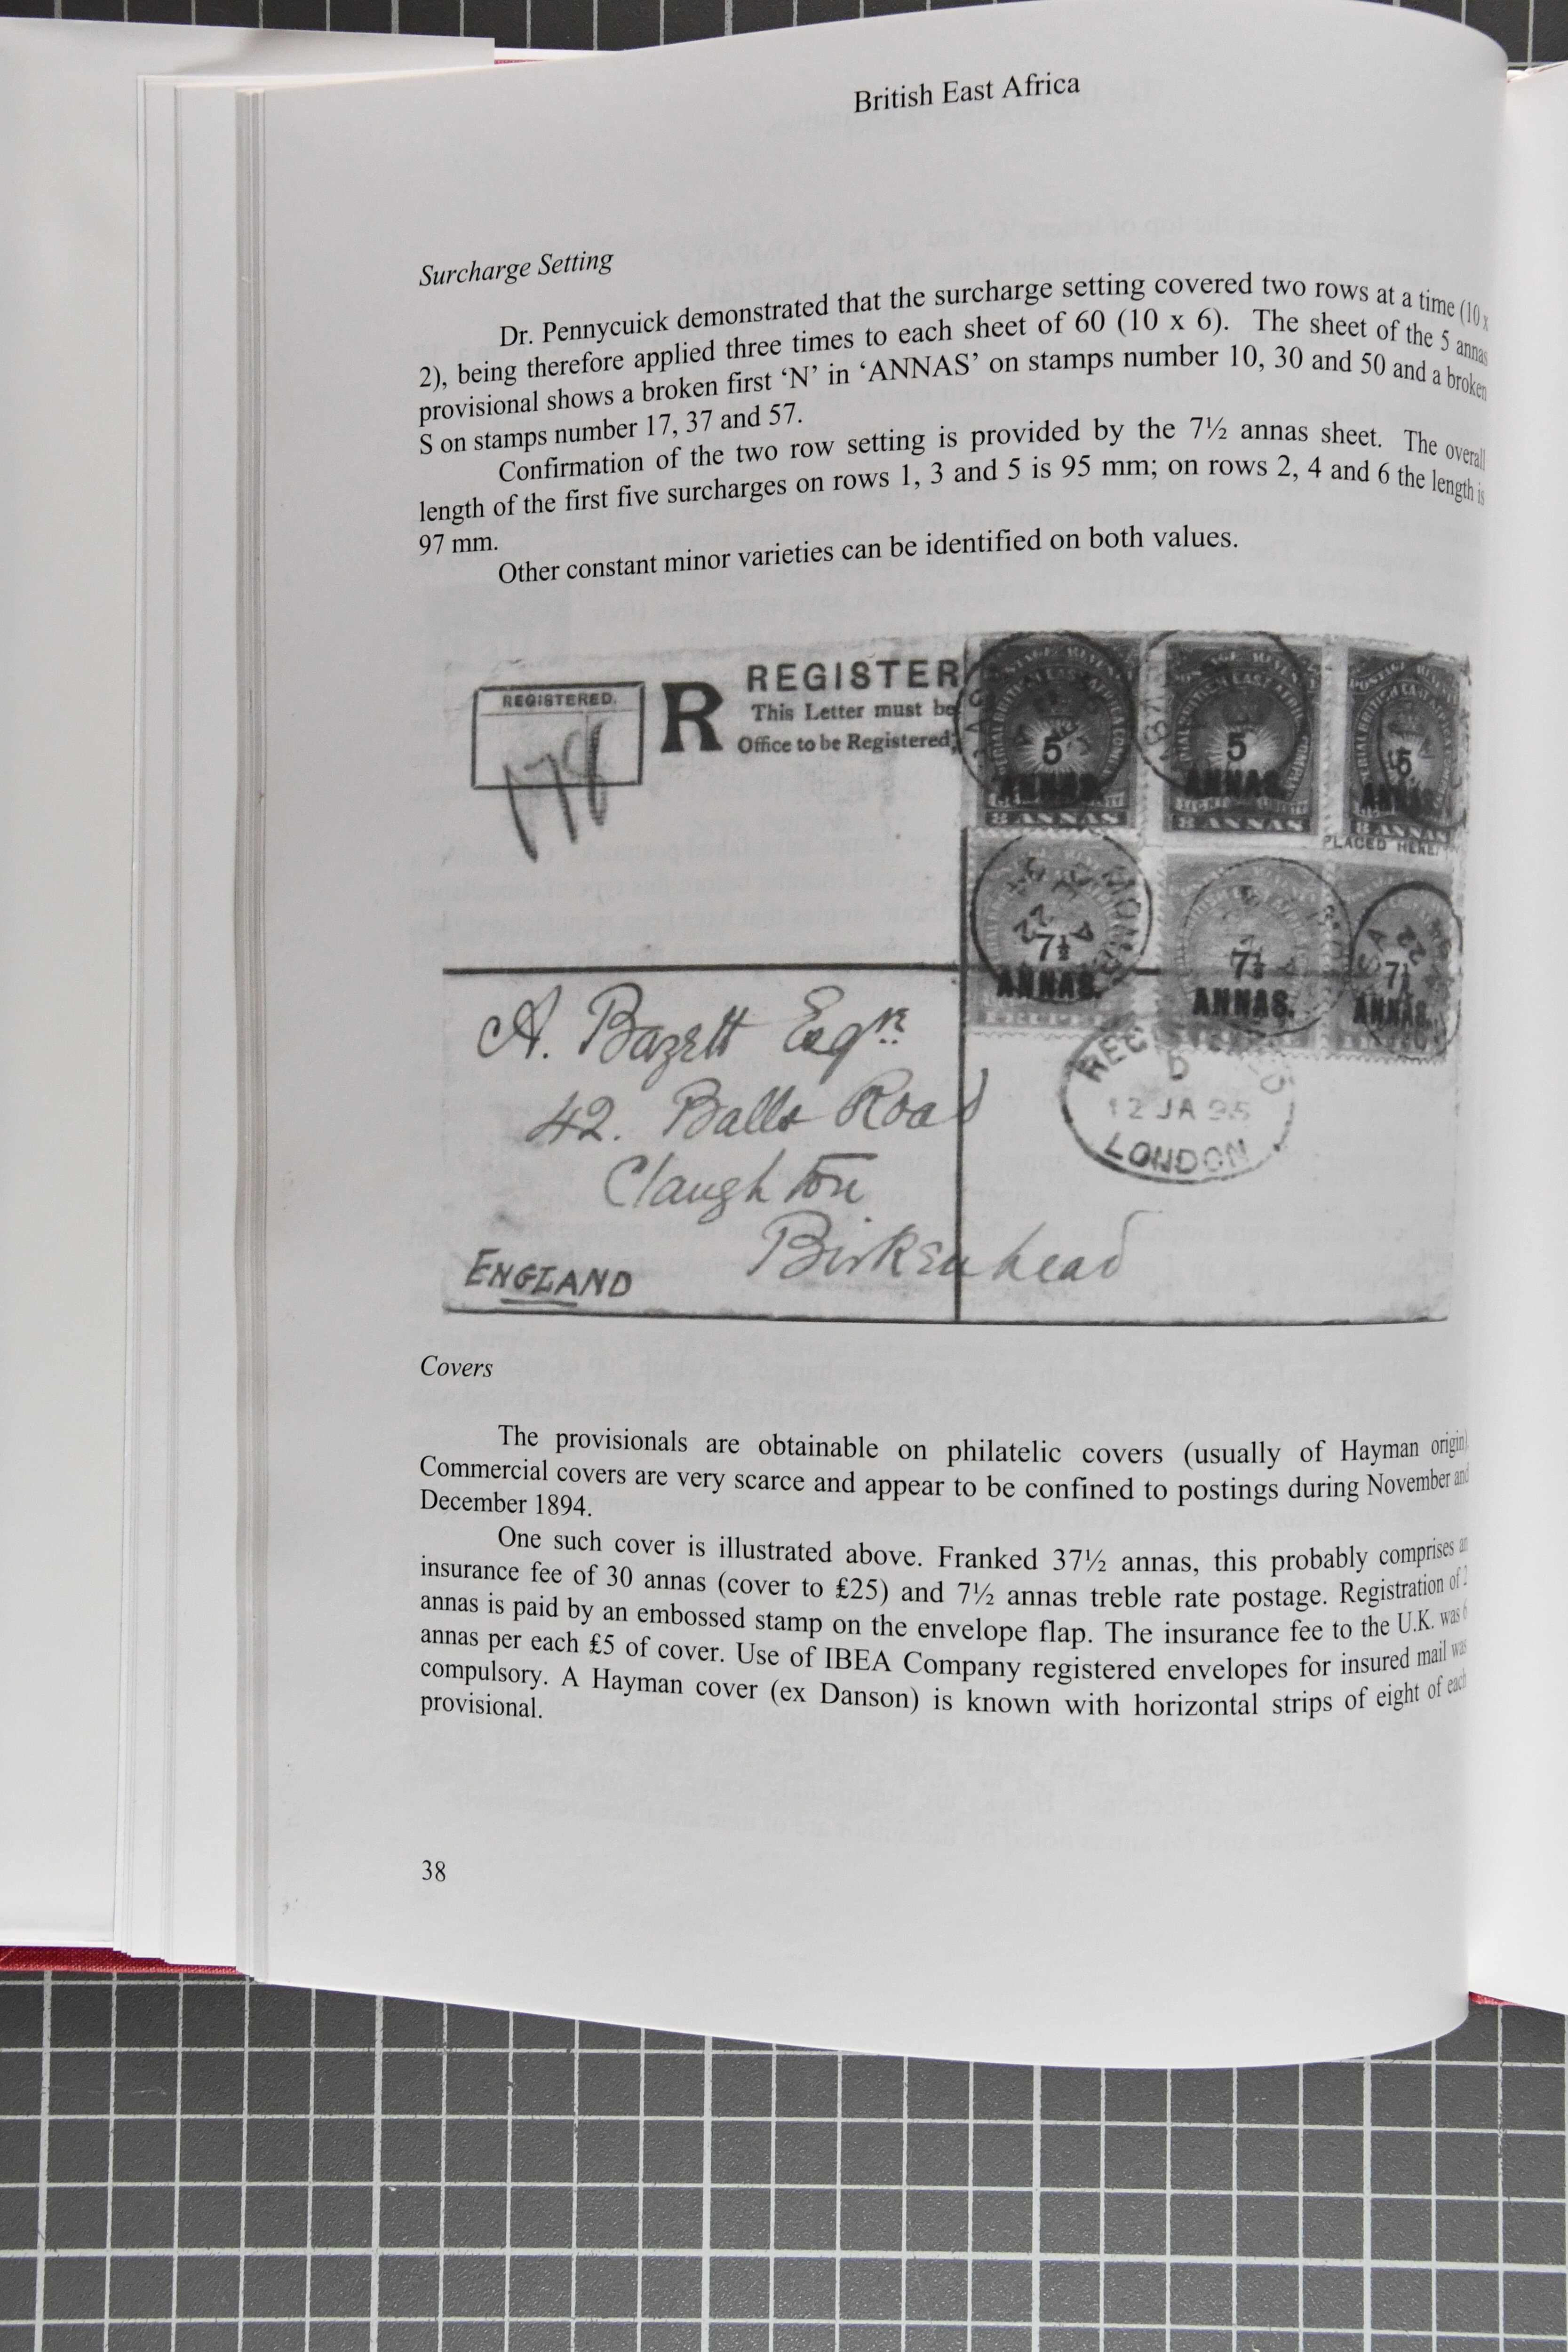 British East Africa
Surcharge Setting
Dr. Pennycuick demonstrated that the surcharge setting covered two rows at a time (10 x
2), being therefore applied three times to each sheet of 60 (10 x 6). The sheet of the 5 annas
provisional shows a broken first ‘N’ in ‘ANNAS’ on stamps number 10, 30 and 50 and a broken
S on stamps number 17, 37 and 57.
Confirmation of the two row setting is provided by the 7½ annas sheet. The overall
length of the first five surcharges on rows 1, 3 and 5 is 95 mm; on rows 2, 4 and 6 the length is
97 mm.
Other constant minor varieties can be identified on both values.
REGISTERED.
178
R
REGISTER
This Letter must be
Office to be Registered,
5
ANNAS.
8 ANNAS
5
ANNAS.
8 ANNAS
5
ANNAS.
8 ANNAS
PLACED HERE.
7½
ANNAS.
7½
ANNAS.
7½
ANNAS.
A. Bazett Esqre
42. Balls Road
Claughton
Birkenhead
ENGLAND
D
12 JA 95
LONDON
Covers
The provisionals are obtainable on philatelic covers (usually of Hayman origin).
Commercial covers are very scarce and appear to be confined to postings during November and
December 1894.
One such cover is illustrated above. Franked 37½ annas, this probably comprises an
insurance fee of 30 annas (cover to £25) and 7½ annas treble rate postage. Registration of 2
annas is paid by an embossed stamp on the envelope flap. The insurance fee to the U.K. was 6
annas per each £5 of cover. Use of IBEA Company registered envelopes for insured mail was
compulsory. A Hayman cover (ex Danson) is known with horizontal strips of eight of each
provisional.
38